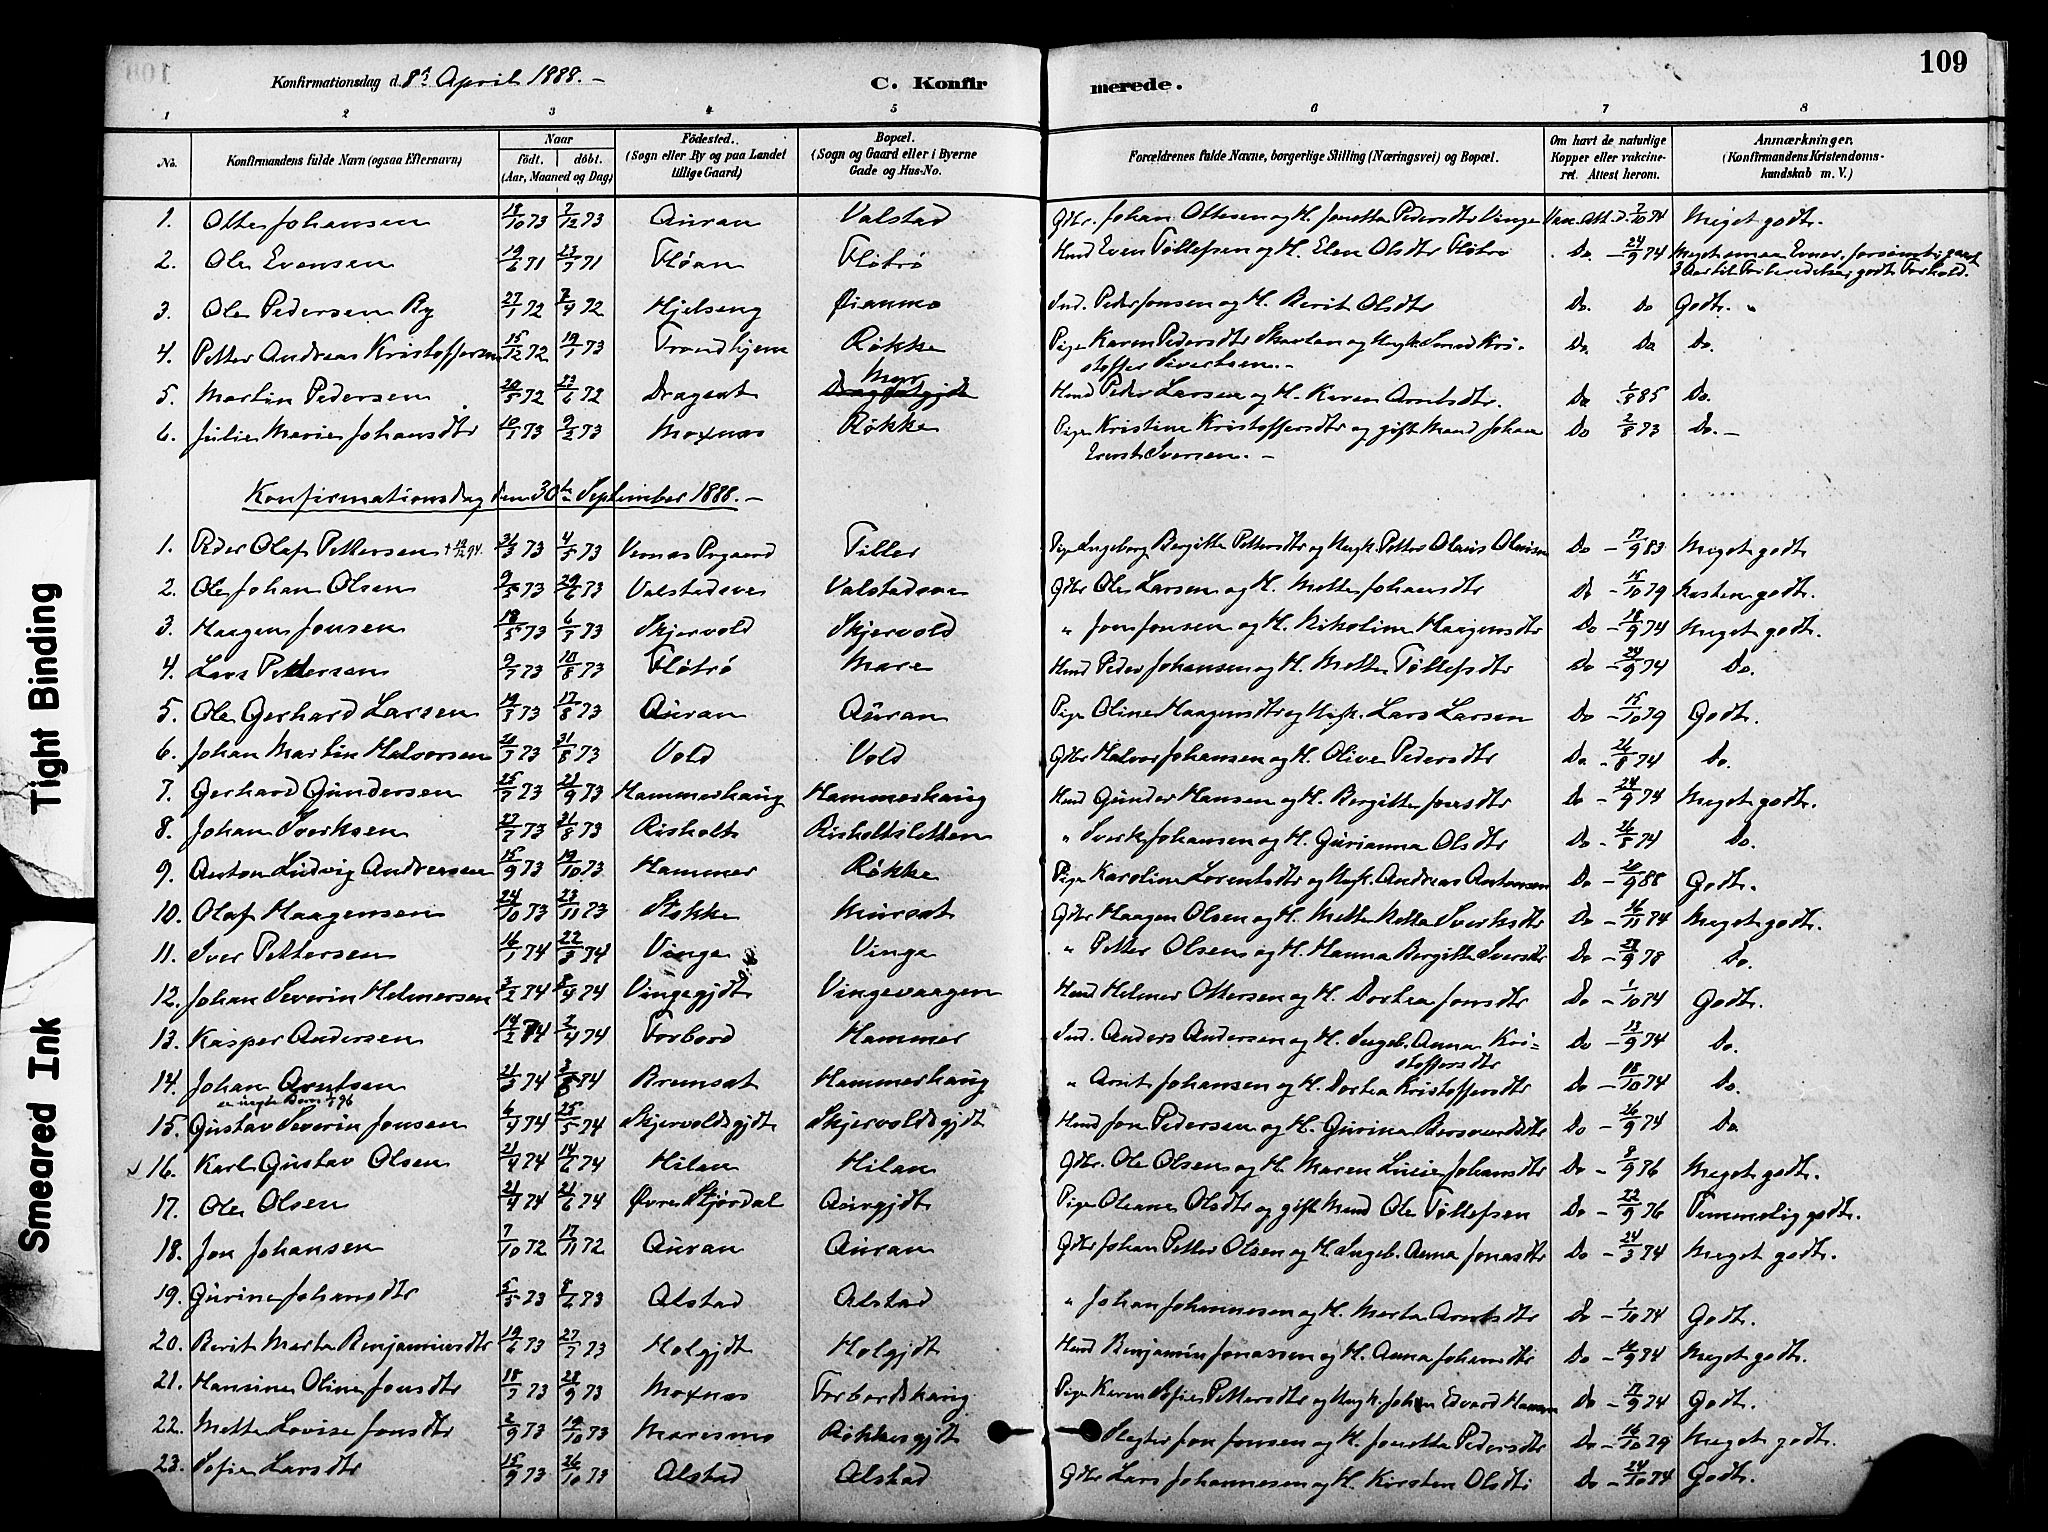 109
Konfirmationsdag d. 8de April 1888. –
C. Konfirmerede.
1 2 3 4 5 6 7 8
No. Konfirmandens fulde Navn (ogsaa Efternavn) Naar født. døbt. (Aar, Maaned og Dag) Fødested. (Sogn eller By og paa Landet tillige Gaard) Bopæl. (Sogn og Gaard eller i Byerne Gade og Hus-No. Forældrenes fulde Navne, borgerlige Stilling (Næringsvei) og Bopæl. Om havt de naturlige Kopper eller vakcineret. Attest herom. Anmærkninger. (Konfirmandens Kristendomskundskab m. V.)
1. Otte Johansen 18/10 73 7/12 73 Auran Valstad Gbr. Johan Ottesen og H. Jonetta Pedersdtr Vinge Vax. Att. d. 2/10 74 Meget godt.
2. Ole Evensen 19/6 71 23/7 71 Fløan Fløtrø Hmd Even Tøllefsen og H. Elen Olsdtr Fløtrø Do. – 24/9 74 Meget smaa Evner, godt Forhold.
3. Ole Pedersen Ry 27/1 72 7/4 72 Hjelseng Øianmo Ind. Peder Jonsen og H. Berit Olsdtr Do. Do Godt.
4. Petter Andreas Kristoffersen 15/12 72 19/1 73 Trondhjem Røkke Pige Karen Pedersdtr Skavlan og Ungk. Kristoffer Sivertsen. – Do. Do Do.
5. Martin Pedersen 20/5 72 23/6 72 Dragsat Myr Hmd Peder Larsen og H. Karen Arntsdtr. Do 1/8 85 Do.
6. Julie Marie Johansdtr 10/1 73 9/2 73 Moxnes Røkke Pige Kristine Kristoffersdtr og gift Mand Johan Ernst Iversen. – Do 2/8 73 Do. –
Konfirmationsdag den 30te September 1888. –
1. Peder Olaf Pettersen 31/3 73 4/5 73 Vernes Prgaard Tiller Pige Ingeborg Bergitte Pettersdtr og Ungk. Petter Olaus Olausen Do – 17/9 83 Meget godt
2. Ole Johan Olsen 9/5 73 29/6 73 Valstadsve Valstadsve Gbr Ole Larsen og H. Mette Johansdtr Do – 15/10 79 Næsten godt.
3. Haagen Jonsen 18/5 73 6/7 73 Skjervold Skjervold " Jon Jonsen og H. Nikoline Haagensdtr Do – 18/9 74 Meget godt.
4. Lars Pedersen 9/7 73 10/8 73 Fløtrø Mære Hmd Peder Johansen og H. Mette Tøllefsdtr Do – 24/9 74 Do.
5. Ole Gerhard Larsen 19/7 73 17/8 73 Auran Auran Pige Oline Haagensdtr og Ungk. Lars Larsen Do – 15/10 79 Godt.
6. Johan Martin Halvorsen 20/7 73 31/8 73 Vold Vold Gbr Halvor Johansen og H. Olive Pedersdtr Do – 26/8 74 Do.
7. Gerhard Gundersen 25/7 73 21/9 73 Hammerhaug Hammerhaug Hmd Gunder Hansen og H. Bergitte Jonsdtr Do – 24/9 74 Meget godt.
8. Johan Sverksen 27/7 73 31/8 73 Risholt Risholtsletten " Sverk Johansen og H. Gurianna Olsdtr Do – 26/8 74 Do.
9. Anton Ludvig Andreassen 15/9 73 19/10 73 Hammer Røkke Pige Karoline Lorentsdtr og Ungk. Andreas Antonsen Do – 20/9 88 Godt.
10. Olaf Haagensen 24/10 73 23/11 73 Stokke Mursat Gbr Haagen Olsen og H. Mette Sverksdtr Do – 16/11 74 Meget godt.
11. Iver Pettersen 16/1 74 22/3 74 Vinge Vinge " Petter Olsen og H. Hanna Bergitte Iversdtr Do – 27/9 78 Do.
12. Johan Severin Helmersen 3/2 74 8/4 74 Vingegjdt Vingevaagen Hmd Helmer Ottersen og H. Dortea Jonsdtr Do – 1/10 74 Godt.
13. Kasper Andersen 14/2 74 2/4 74 Forbord Hammer Ind. Anders Andersen og H. Ingeb. Anna Kristoffersdtr Do – 13/9 74 Do.
14. Johan Arntsen 21/3 74 74 Bremsat Hammerhaug " Arnt Johansen og H. Dortea Kristoffersdtr Do – 18/10 74 Do.
15. Gustav Severin Jonsen 6/4 74 25/5 74 Skjervoldsgjdt Skjervoldsgjdt Hmd Jon Pedersen og H. Gurina Do – 26/9 74 Do
16. Karl Gustav Olsen 21/4 74 14/6 74 Hilan Hilan Gbr. Ole Olsen og H. Maren Lucie Johansdtr Do – 8/9 76 Meget godt.
17. Ole Olsen 21/4 74 21/6 74 Øvre Stjørdal Aurgjdt Pige Oleane Olsdtr og gift Mand Ole Tøllefsen Do – 22/9 76 Temmelig godt.
18. Jon Johansen 7/10 72 17/11 72 Auran Auran Gbr Johan Petter Olsen og H. Ingeb. Anna Jonasdtr Do – 24/3 74 Meget godt.
19. Gurine Johansdtr 5/5 73 8/6 73 Alstad Alstad " Johan Johannesen og H. Marta Arntsdtr Do – 1/10 74 Godt.
20. Berit Marta Benjaminsdtr 19/6 73 27/7 73 Holgjdt Holgjdt Hmd Benjamin Jonassen og H. Anna Johansdtr Do – 16/9 74 Meget godt.
21. Hansine Oline Jonsdtr 18/7 73 28/9 73 Moxnes Forbordshaug Pige Karen Sofie Pettersdtr og Ungk. Johan Edvard Hansen Do – 17/9 74 Godt.
22. Mette Lovise Jonsdtr 2/9 73 19/10 73 Maresmo Røkkesgjdt Slagter Jon Jonsen og H. Jonetta Pedersdtr Do – 16/10 79 Meget godt.
23. Sofie Larsdtr 15/9 73 26/10 73 Alstad Alstad Gbr Lars Johannesen og H. Kirsten Olsdtr Do – 24/10 74 Godt.
Tight Binding
Smeared Ink